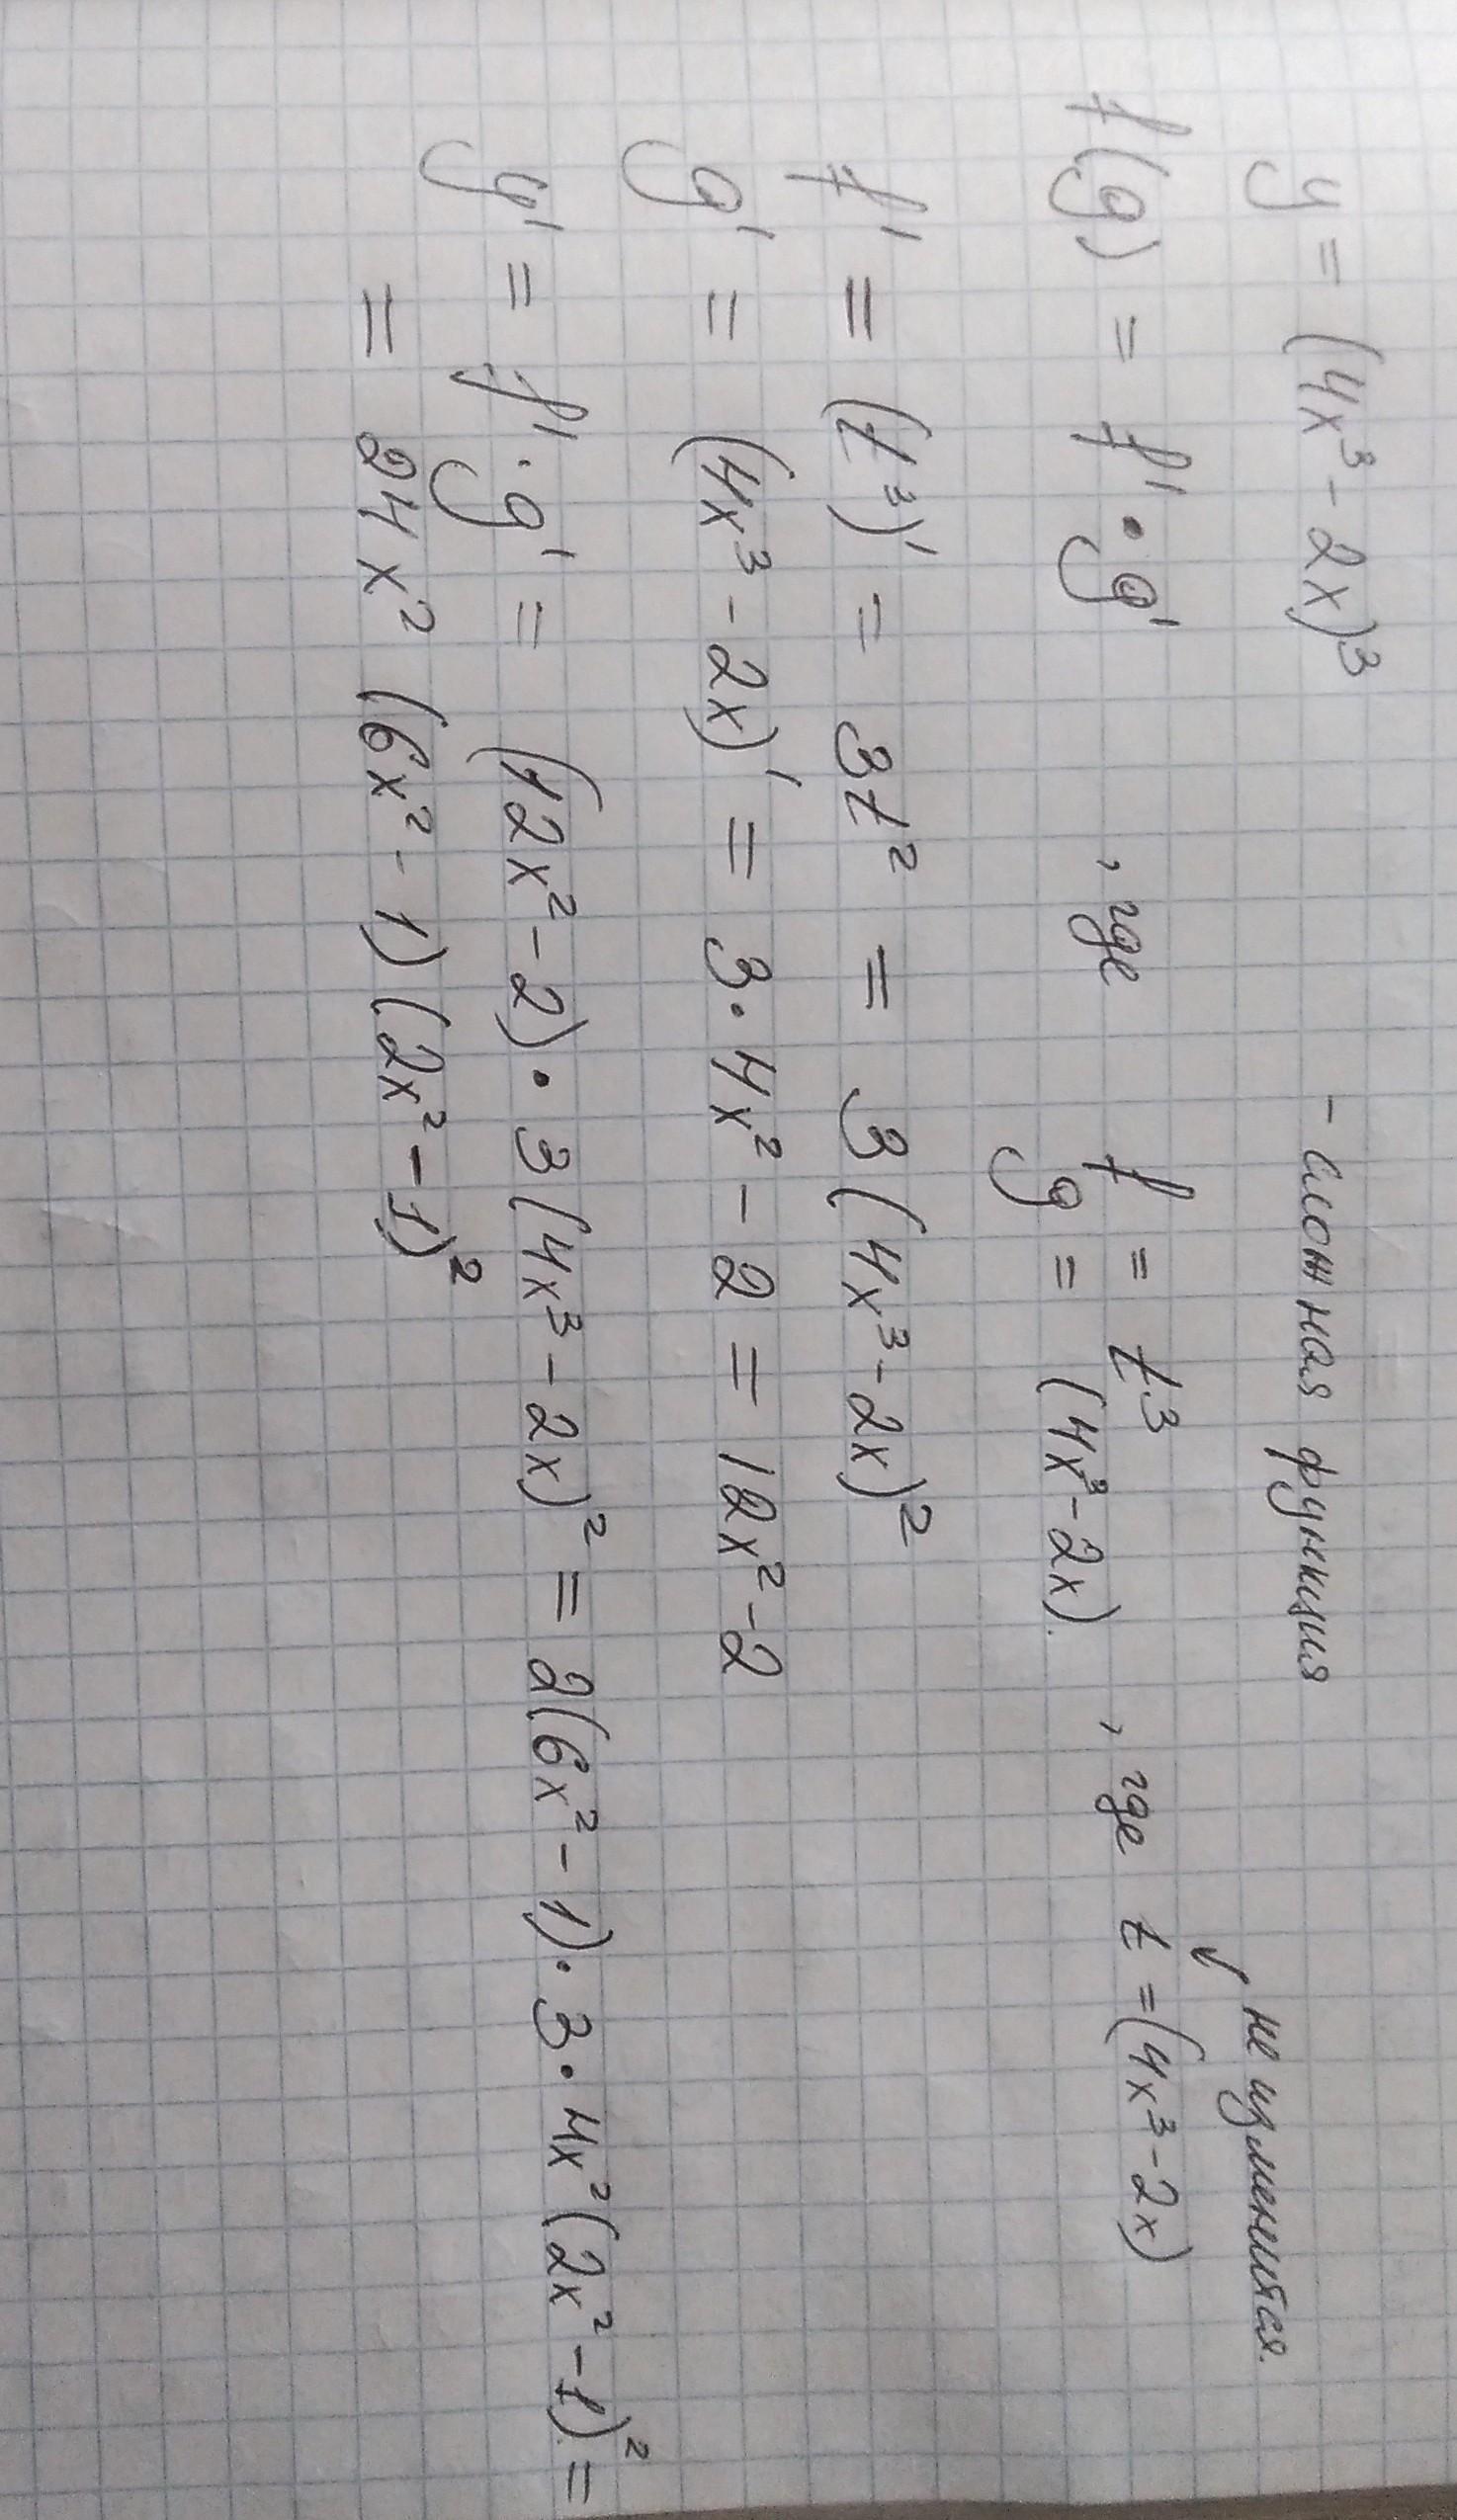 y = (4x³ - 2x)³ - сложная функция
не изменится.
f(g) = f' · g' , где f = t³ , где t = (4x³ - 2x)
g = (4x³ - 2x).
f' = (t³)' = 3t² = 3(4x³ - 2x)²
g' = (4x³ - 2x)' = 3 · 4x² - 2 = 12x² - 2
y' = f' · g' = (12x² - 2) · 3(4x³ - 2x)² = 2(6x² - 1) · 3 · 4x²(2x² - 1)² =
= 24x² (6x² - 1)(2x² - 1)²